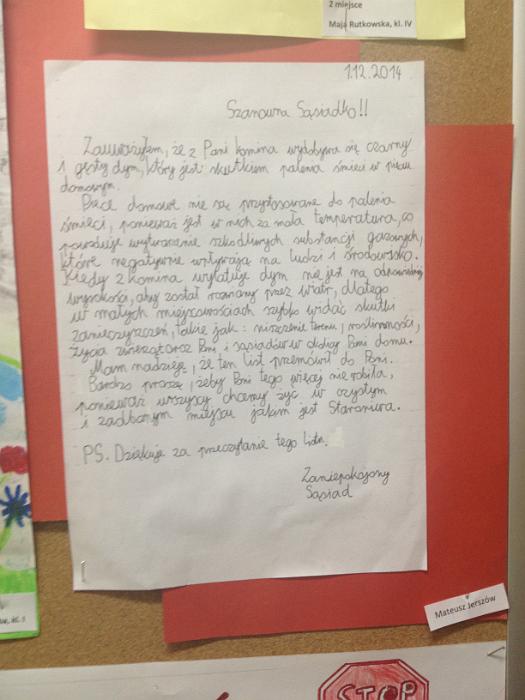 2 miejsce
Maja Rutkowska, kl. IV
1.12.2014
Szanowna Sąsiadko!!
Zauważyłem, że z Pani komina wydobywa się czarny
i gęsty dym, który jest skutkiem palenia śmieci w piecu
domowym.
Piece domowe nie są przystosowane do palenia
śmieci, ponieważ jest w nich za mała temperatura, co
powoduje wytwarzanie szkodliwych substancji gazowych,
które negatywnie wpływają na ludzi i środowisko.
Kiedy z komina wylatuje dym nie jest na odpowiedniej
wysokości, aby został rozwiany przez wiatr, dlatego
w małych miejscowościach szybko widać skutki
zanieczyszczeń, takie jak: niszczenie terenu, roślinności,
życia zwierząt oraz Pani, i sąsiadów w okolicy Pani domu.
Mam nadzieję, że ten list przemówił do Pani.
Bardzo proszę, żeby Pani tego więcej nie robiła,
ponieważ wszyscy chcemy żyć w czystym
i zadbanym miejscu jakim jest Staromura.
PS. Dziękuję za przeczytanie tego listu.
Zaniepokojony
Sąsiad
Mateusz Jerszów
STOP